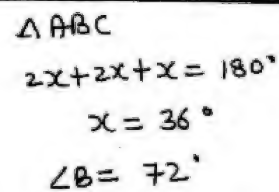 △ ABC
2x+2x+x = 180°
x = 36°
∠B = 72°